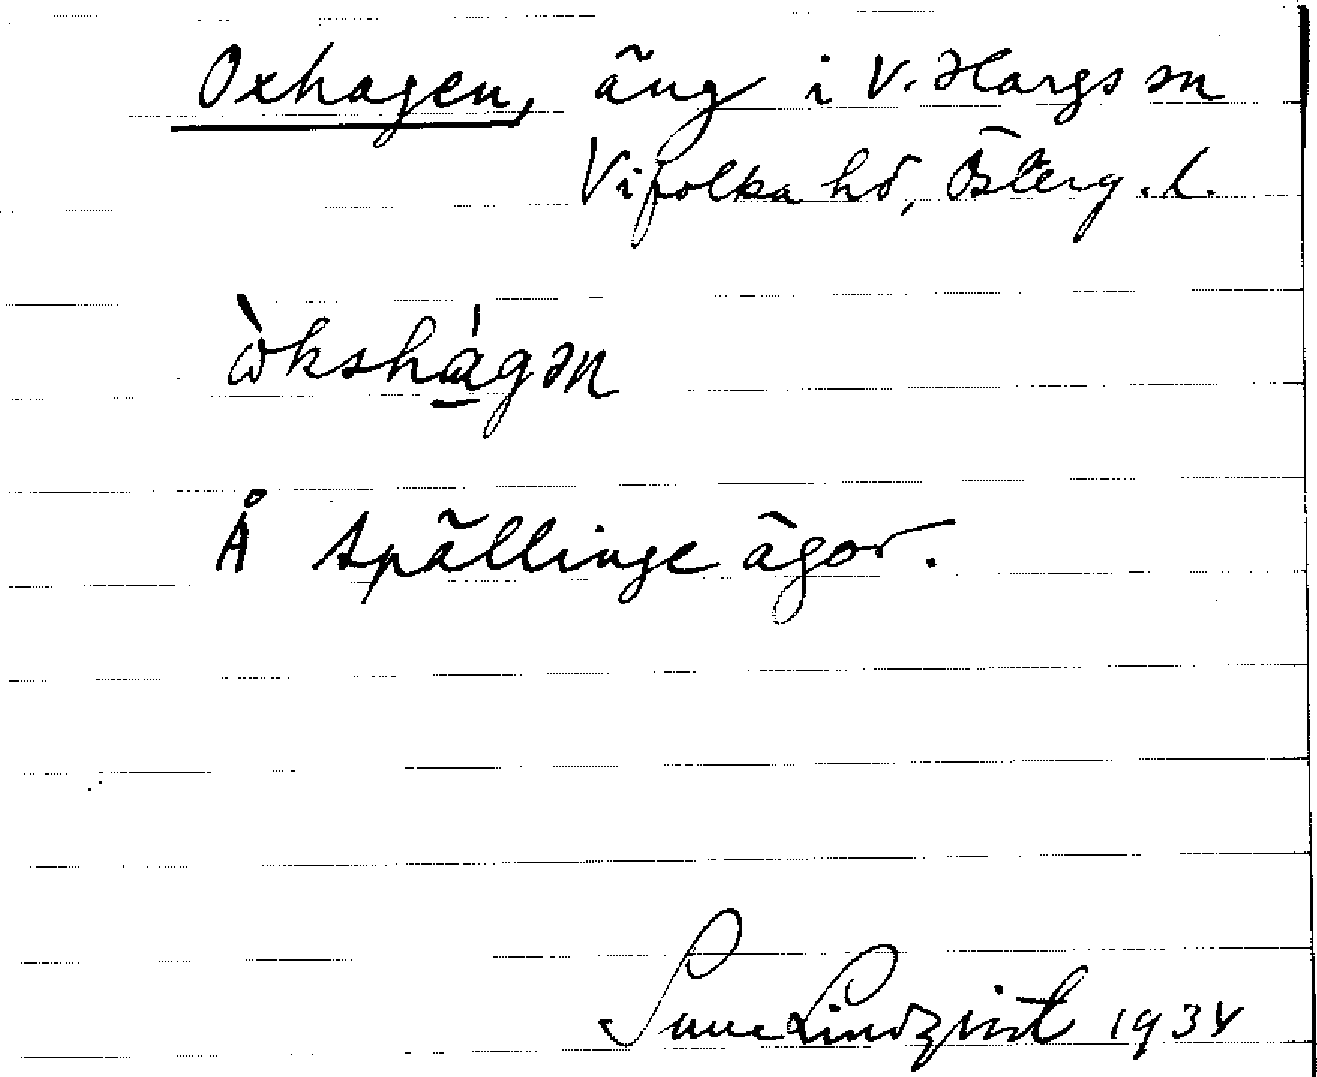 Oxhagen, äng i V. Hargs sn
Vifolka hd, Österg. l.
ὼkshágən
Å Spällinge ägor.
Sune Lindqvist 1934